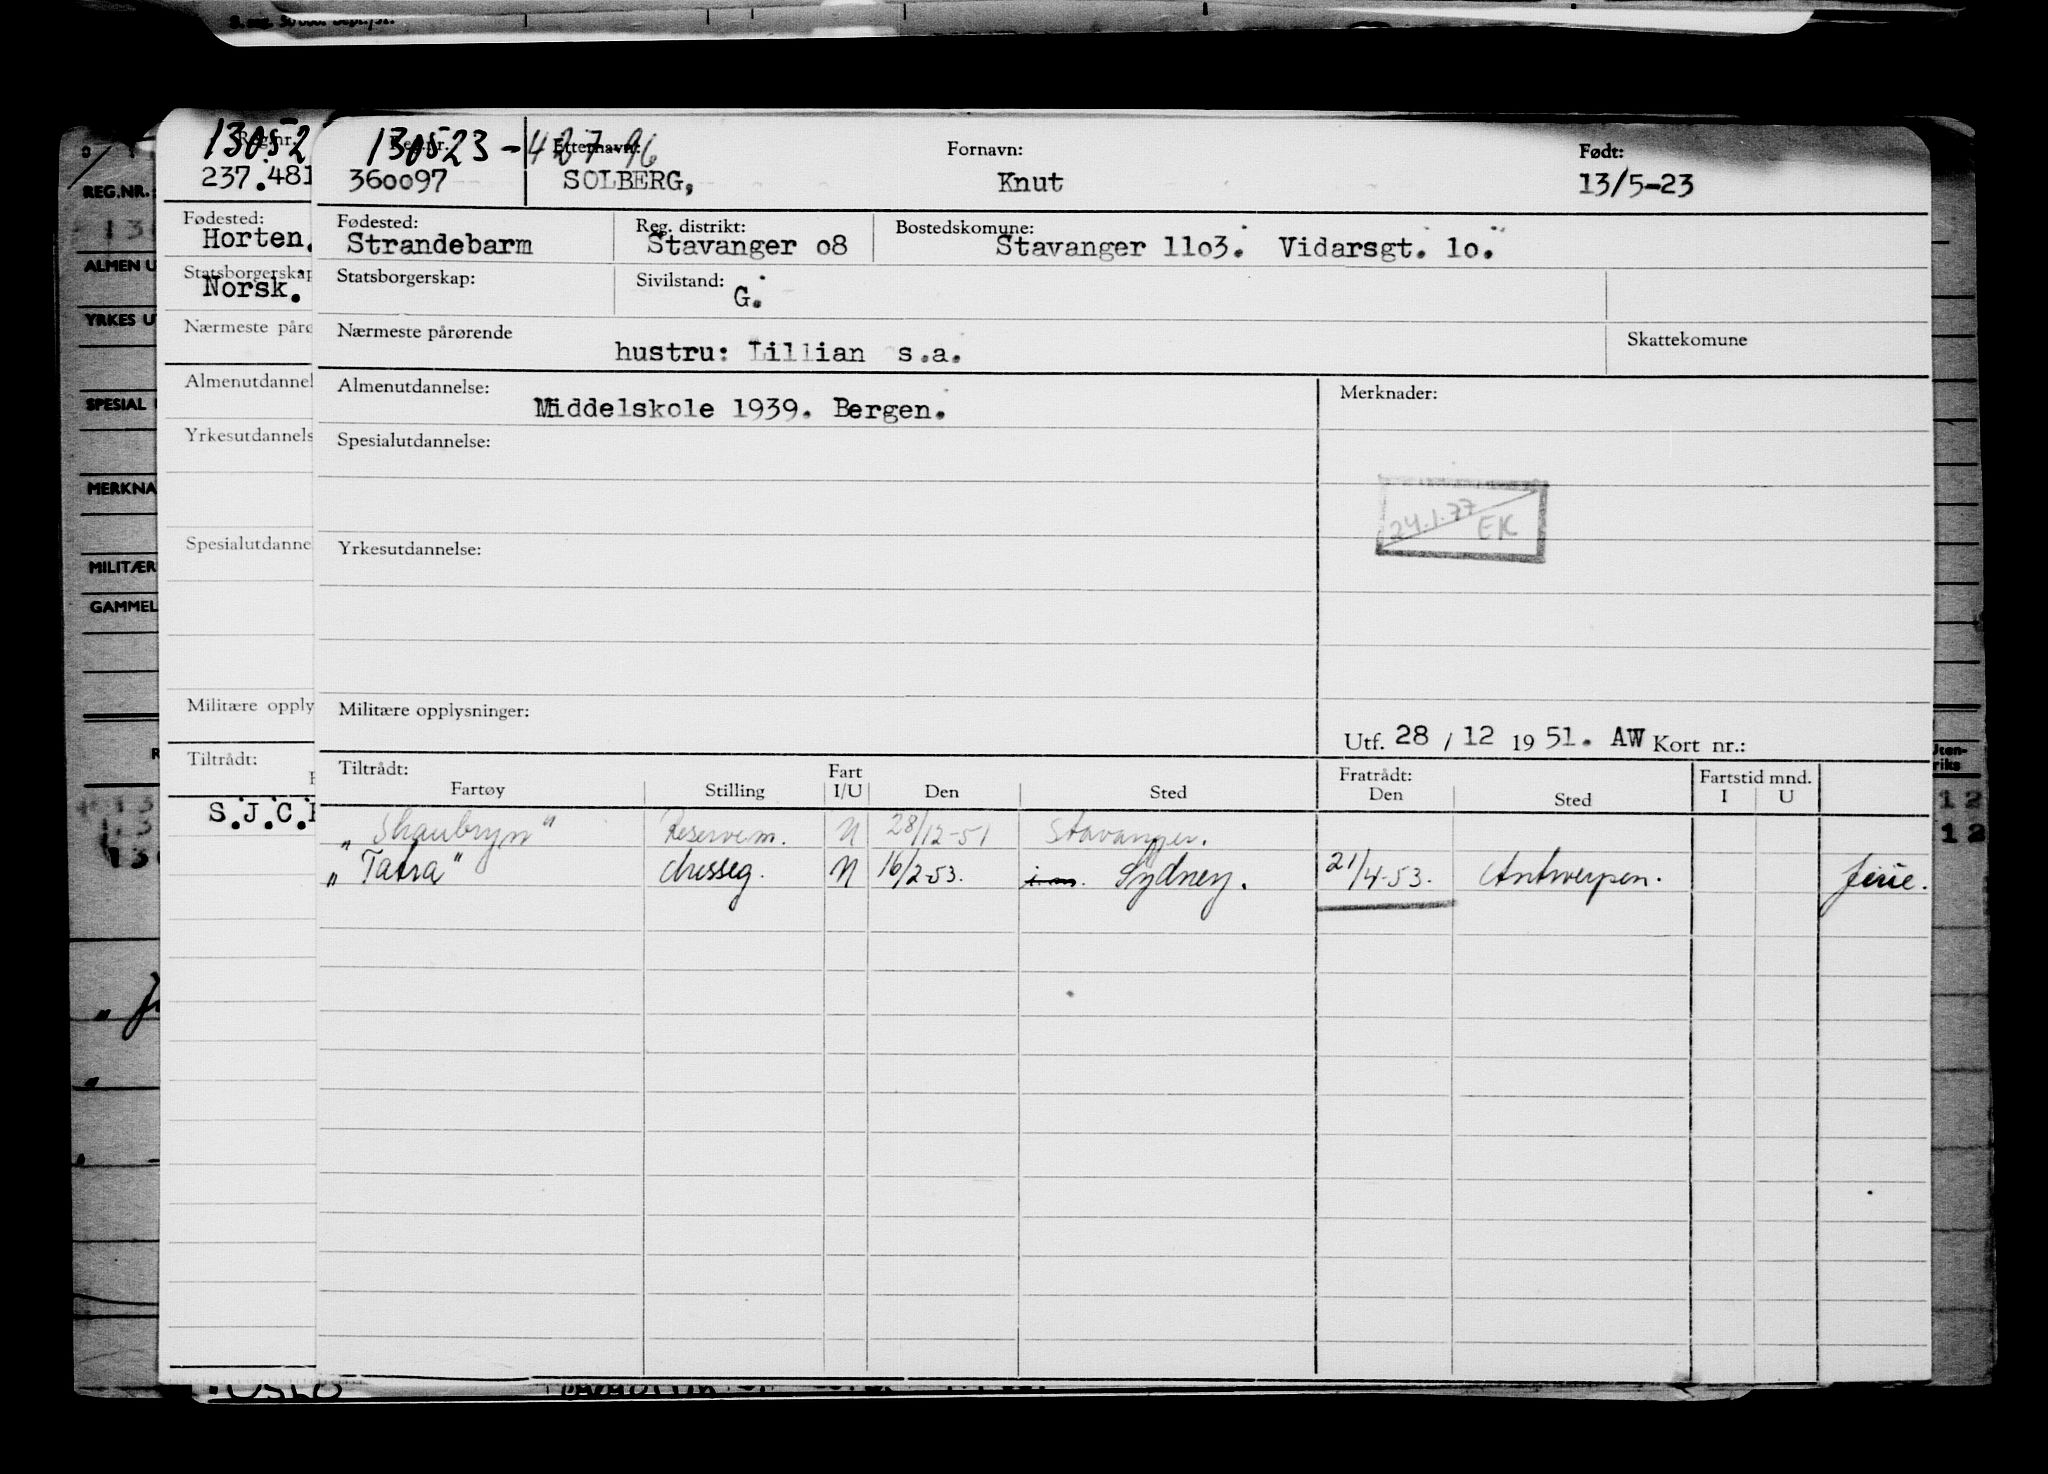 130523-42796
Reg.nr. Etternavn: Fornavn: Født:
360097 SOLBERG, Knut 13/5-23
Fødested: Reg. distrikt: Bostedskomune:
Strandebarm Stavanger o8 Stavanger 11o3. Vidarsgt. 1o.
Statsborgerskap: Sivilstand: G.
Nærmeste pårørende Skattekomune
hustru: Lillian s.a.
Almenutdannelse: Merknader:
Middelskole 1939. Bergen.
Spesialutdannelse:
24.1.77 EK
Yrkesutdannelse:
Militære opplysninger:
Utf. 28 / 12 19 51. AW Kort nr.:
Tiltrådt: Fart Fratrådt: Fartstid mnd.
Fartøy Stilling I/U Den Sted Den Sted I U
„Skaubryn" Reservem. U 28/12-51 Stavanger.
„Tatra" Messeg. U 16/2-53. Sydney. 21/4-53. Antwerpen. ferie.
13052
Reg.nr.
237.481
Fødested:
Horten.
Statsborgerskap
Norsk.
Nærmeste påro
Almenutdannel
Yrkesutdannels
Spesialutdanne
Militære opply
Tiltrådt:
S.J.C.
REG.NR.:
ALMEN U
YRKES U
SPESIAL
MERKNA
MILITÆR
GAMMEL
Uten-
riks
12
12
OSLO